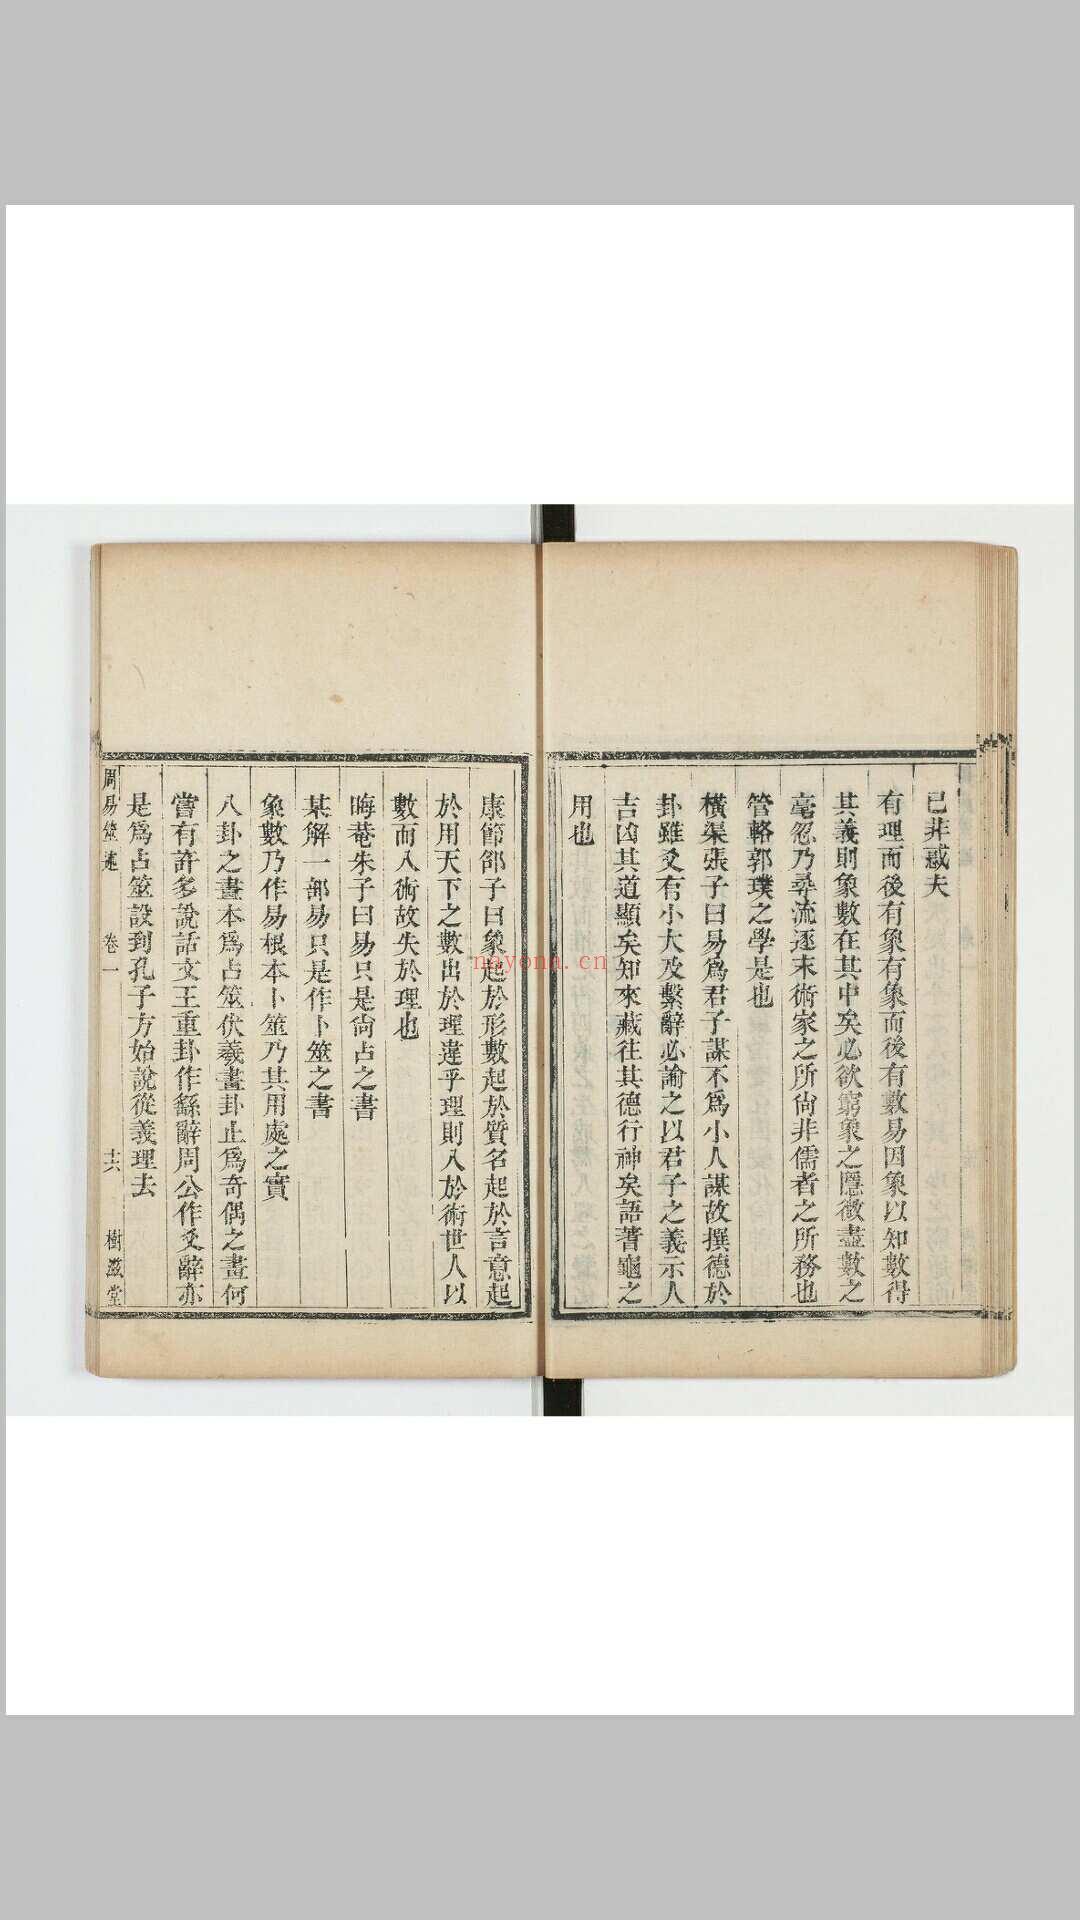 已非惑夫
有理而後有象有象而後有數易因象以知數得
其義則象數在其中矣必欲窮象之隱微盡數之
毫忽乃尋流逐末術家之所尙非儒者之所務也
管輅郭璞之學是也
橫渠張子曰易爲君子謀不爲小人謀故撰德於
卦雖爻有小大及繫辭必諭之以君子之義示人
吉凶其道顯矣知來藏往其德行神矣語蓍龜之
用也
康節邵子曰象起於形數起於質名起於言意起
於用天下之數出於理違乎理則入於術世人以
數而入術故失於理也
晦菴朱子曰易只是尙占之書
某解一部易只是作卜筮之書
象數乃作易根本卜筮乃其用處之實
八卦之畫本爲占筮伏羲畫卦止爲奇偶之畫何
嘗有許多說話文王重卦作繇辭周公作爻辭亦
是爲占筮設到孔子方始說從義理去
周易筮述 卷一 十六 樹滋堂
nayona.cn